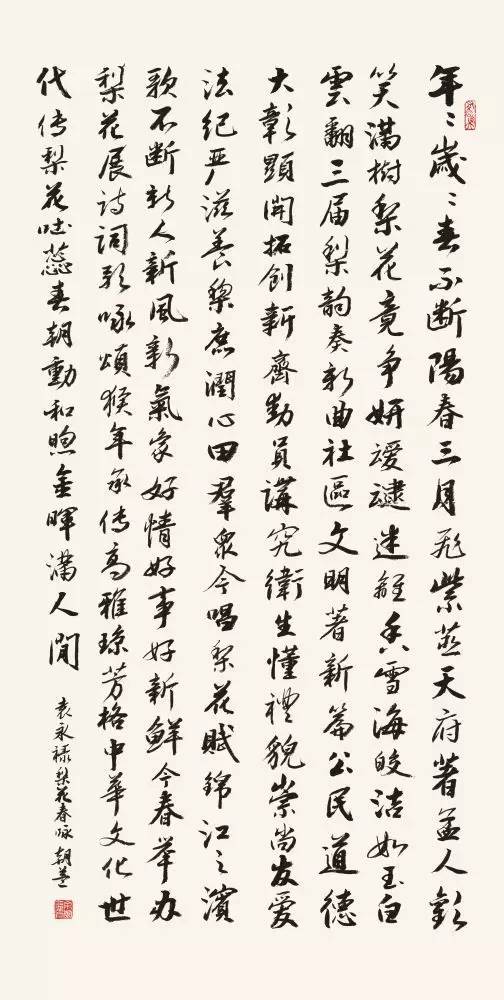 年〻歲〻春不断陽春三月飛紫燕天府著人歡
笑滿樹梨花竟争妍叆叇迷離香雪海皎洁如玉白
雲翻三届梨韵奏新曲社區文明著新篇公民道德
大彰顯開拓創新齊動員講究衛生懂禮貌崇尚友爱
法纪严滋養黎庶潤心田羣衆今唱梨花賦錦江之濱
歌不断新人新風新氣象好情好事好新鮮今春举办
梨花展诗詞歌咏頌猴年承传高雅琼芳格中華文化世
代传梨花吐蕊春朝勳和煦金暉滿人間
袁永禄梨花春咏朝